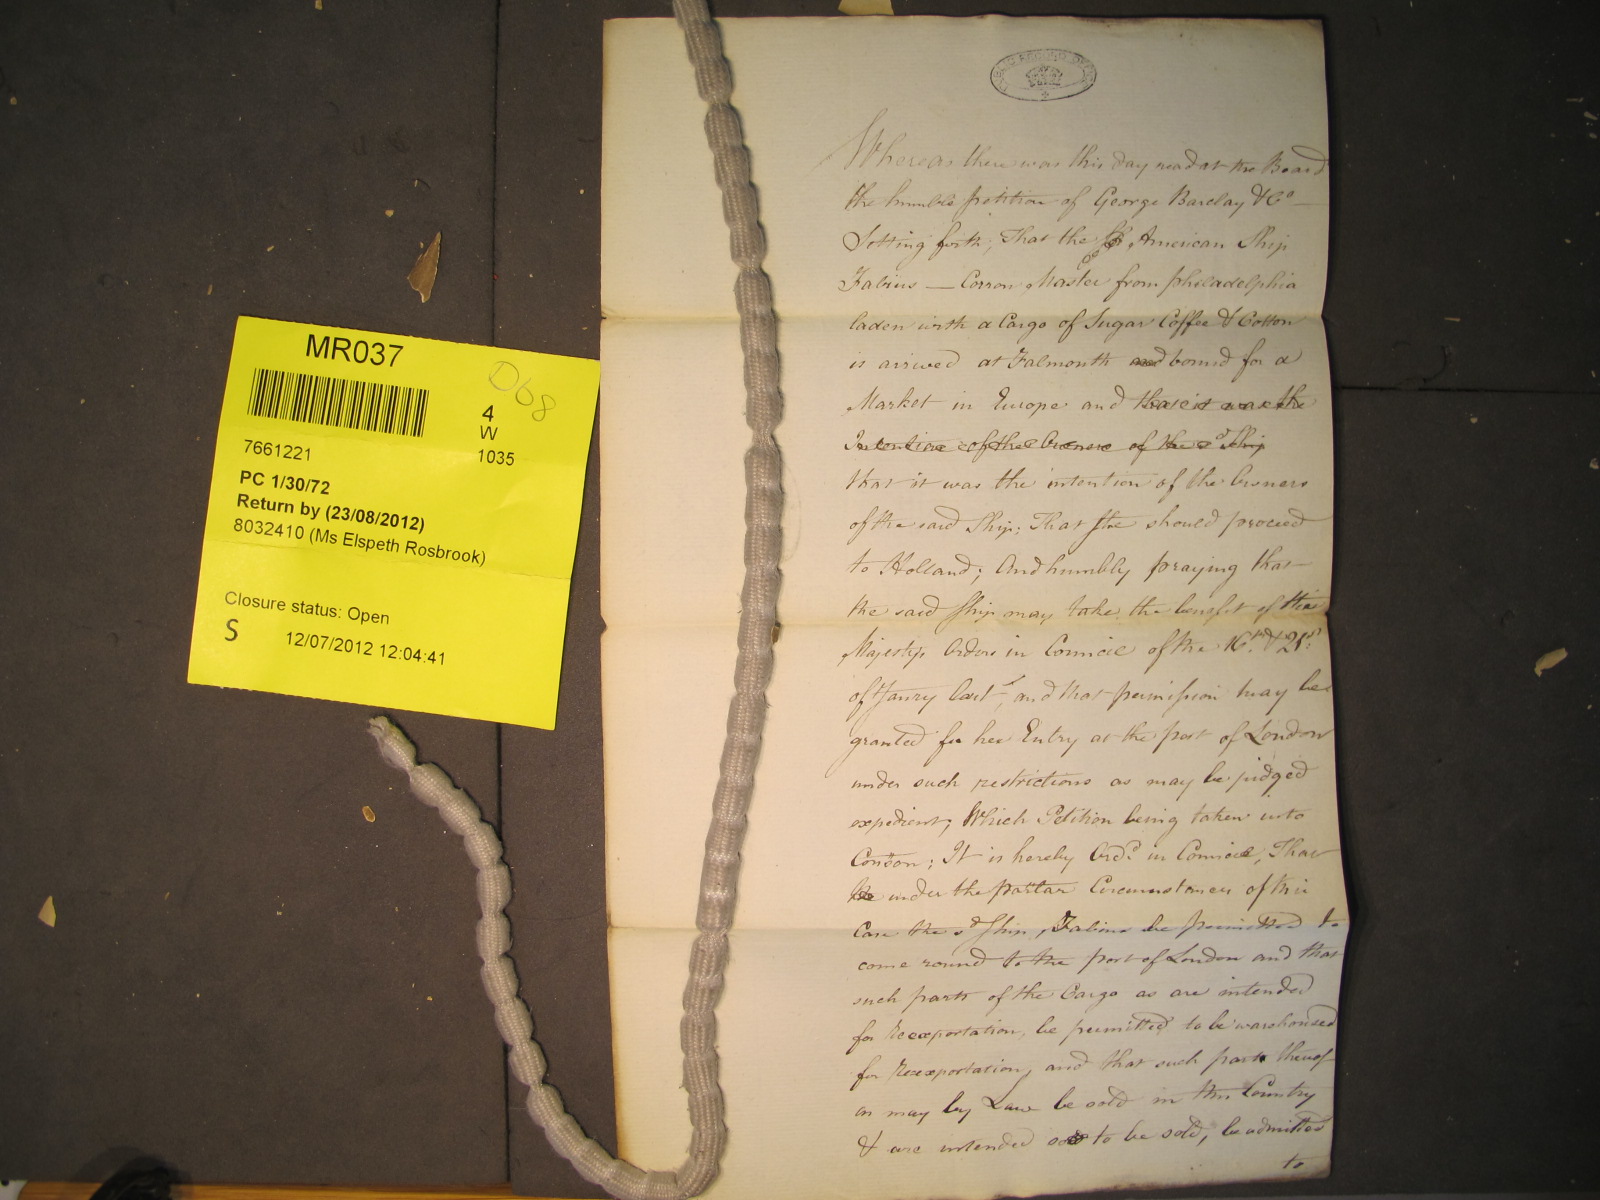 MR037
068
4
W
1035
7661221
PC 1/30/72
Return by (23/08/2012)
8032410 (Ms Elspeth Rosbrook)
Closure status: Open
S
12/07/2012 12:04:41
PUBLIC RECORD OFFICE
Whereas there was this day read at the Board
the humble petition of George Barclay & Co
Setting forth; That the American Ship
Fabius — Corran Master from philadelphia
laden with a Cargo of Sugar Coffee & Cotton
is arrived at Falmouth and bound for a
Market in Europe and that it was the
Intention of the Owners of the sd Ship
that it was the intention of the Owners
of the said Ship; That she should proceed
to Holland; And humbly praying that
the said Ship may take the benefit of His
Majestys Orders in Council of the 16th & 21st
of Janry last, and that permission may be
granted for her Entry at the port of London
under such restrictions as may be judged
expedient; Which Petition being taken into
Conson; It is hereby Ordd in Council, That
the under the partar Circumstances of this
Case the sd Ship Fabius be permitted to
come round to the port of London and that
such parts of the Cargo as are intended
for Reexportation, be permitted to be warehoused
for Reexportation, and that such parts thereof
as may by Law be sold in this Country
& are intended to be sold, be admitted
to